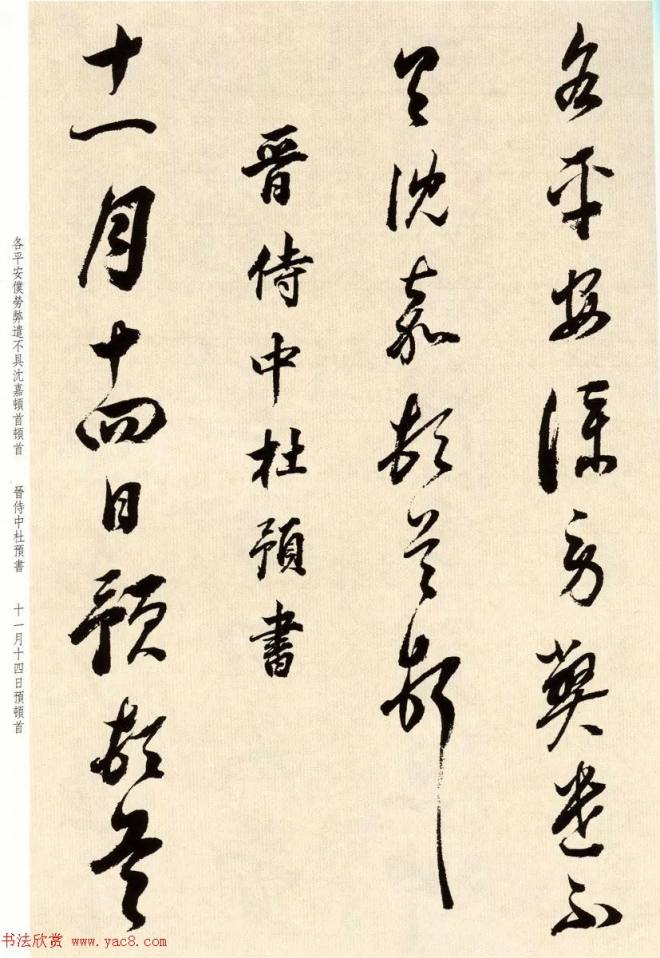 各平安僕勞弊遣不
具沈嘉頓首頓首
晉侍中杜預書
十一月十四日預頓首
各平安僕勞弊遣不具沈嘉頓首頓首 晉侍中杜預書 十一月十四日預頓首
书法欣赏 www.yac8.com